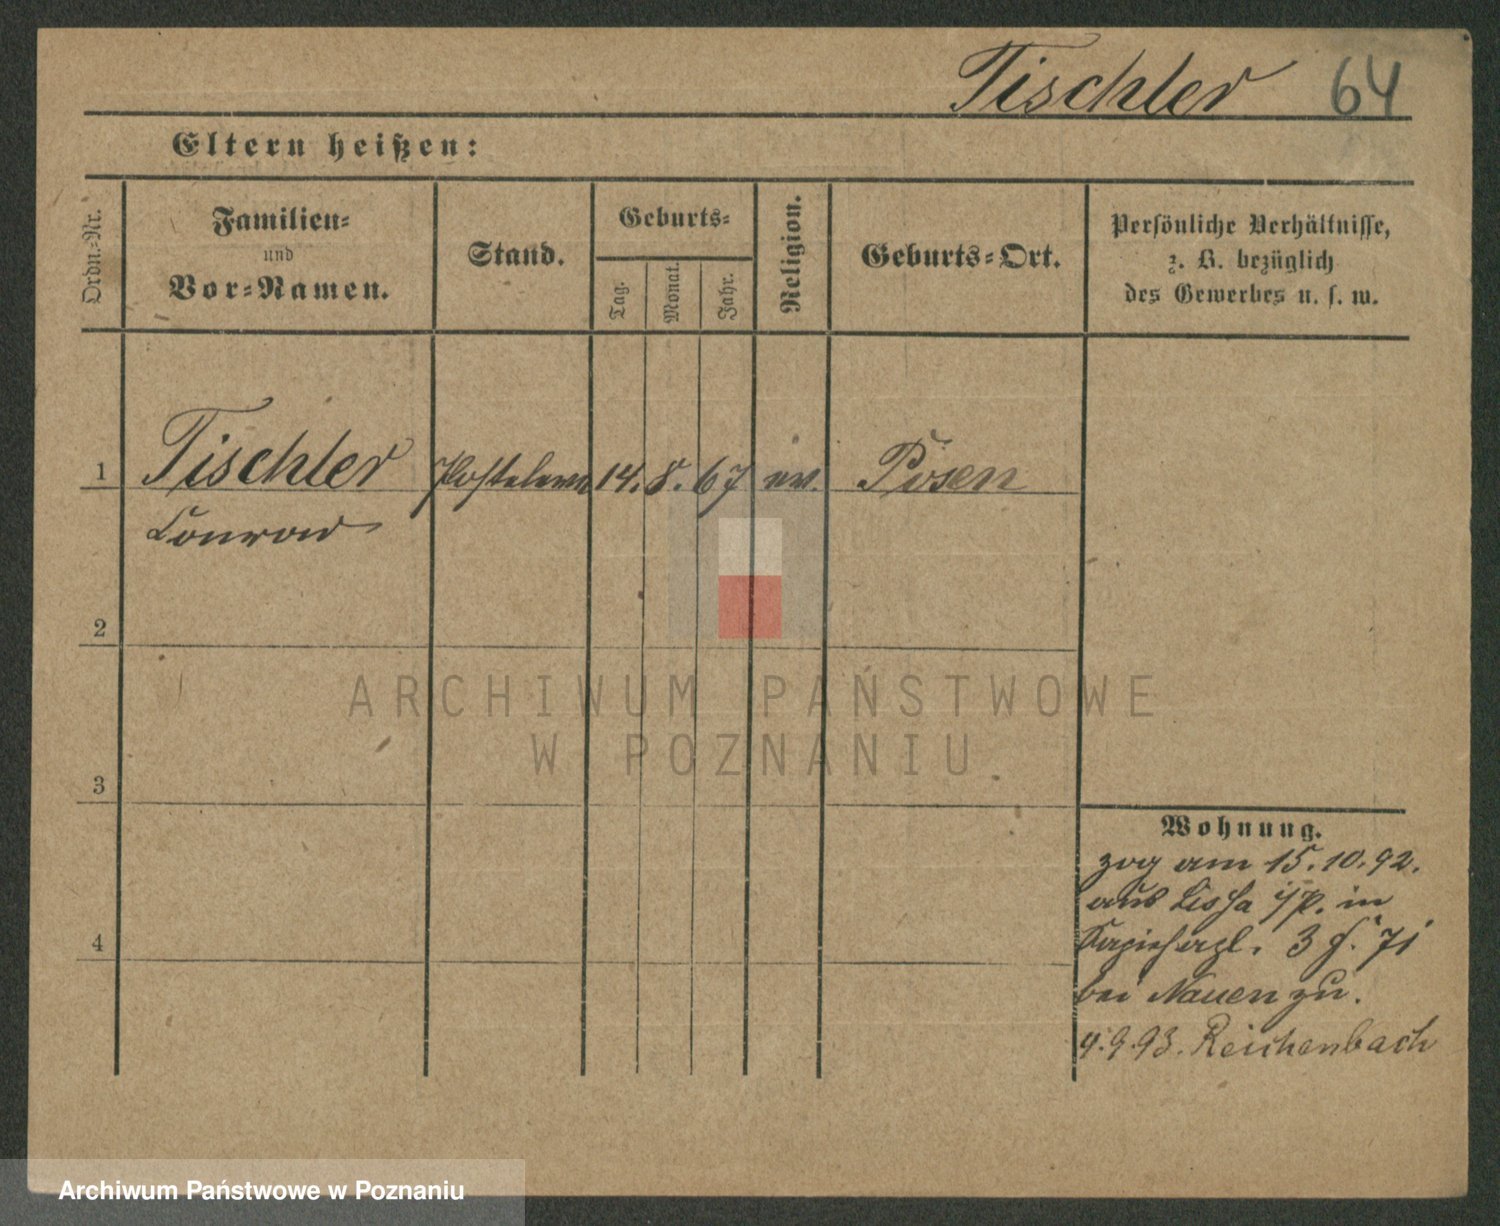 Tischler 64
Eltern heißen:
Ordn.-Nr.
Familien-
und
Vor-Namen.
Stand.
Geburts-
Tag.
Monat.
Jahr.
Religion.
Geburts-Ort.
Persönliche Verhältnisse,
z. B. bezüglich
des Gewerbes u. s. w.
1 Tischler 14. 8. 67 ev. Posen
Conrad
2
3
4
Wohnung.
zog am 15.10.92.
aus Lissa i/P. in
3 71
bei Nauen zu.
4.9.93. Reichenbach
ARCHIWUM PAŃSTWOWE
W POZNANIU
Archiwum Państwowe w Poznaniu